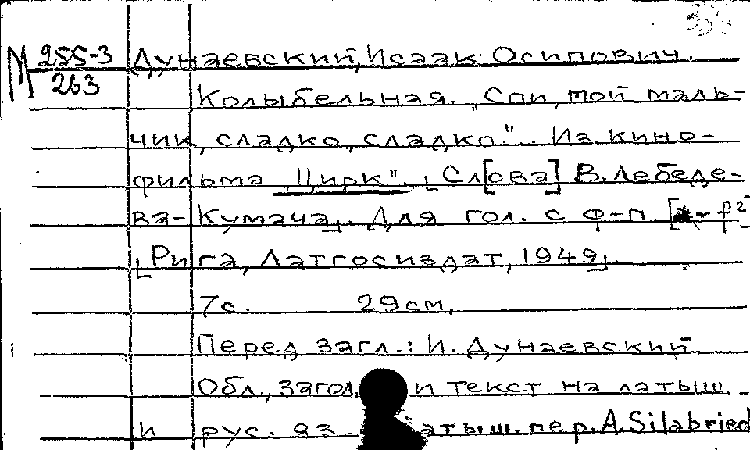 М 255-3
263
Дунаевский, Исаак Осипович.
Колыбельная. „Спи, мой маль-
чик, сладко, сладко." Из кино-
фильма „Цирк". Сл[ова] В. Лебеде-
ва-Кумача. Для гол. с ф-п.
Рига, Латгосиздат, 1949.
7с. 29см.
Перед загл.: И. Дунаевский
Обл., загол. и текст на латыш.
и рус. яз. пер. A. Silabried